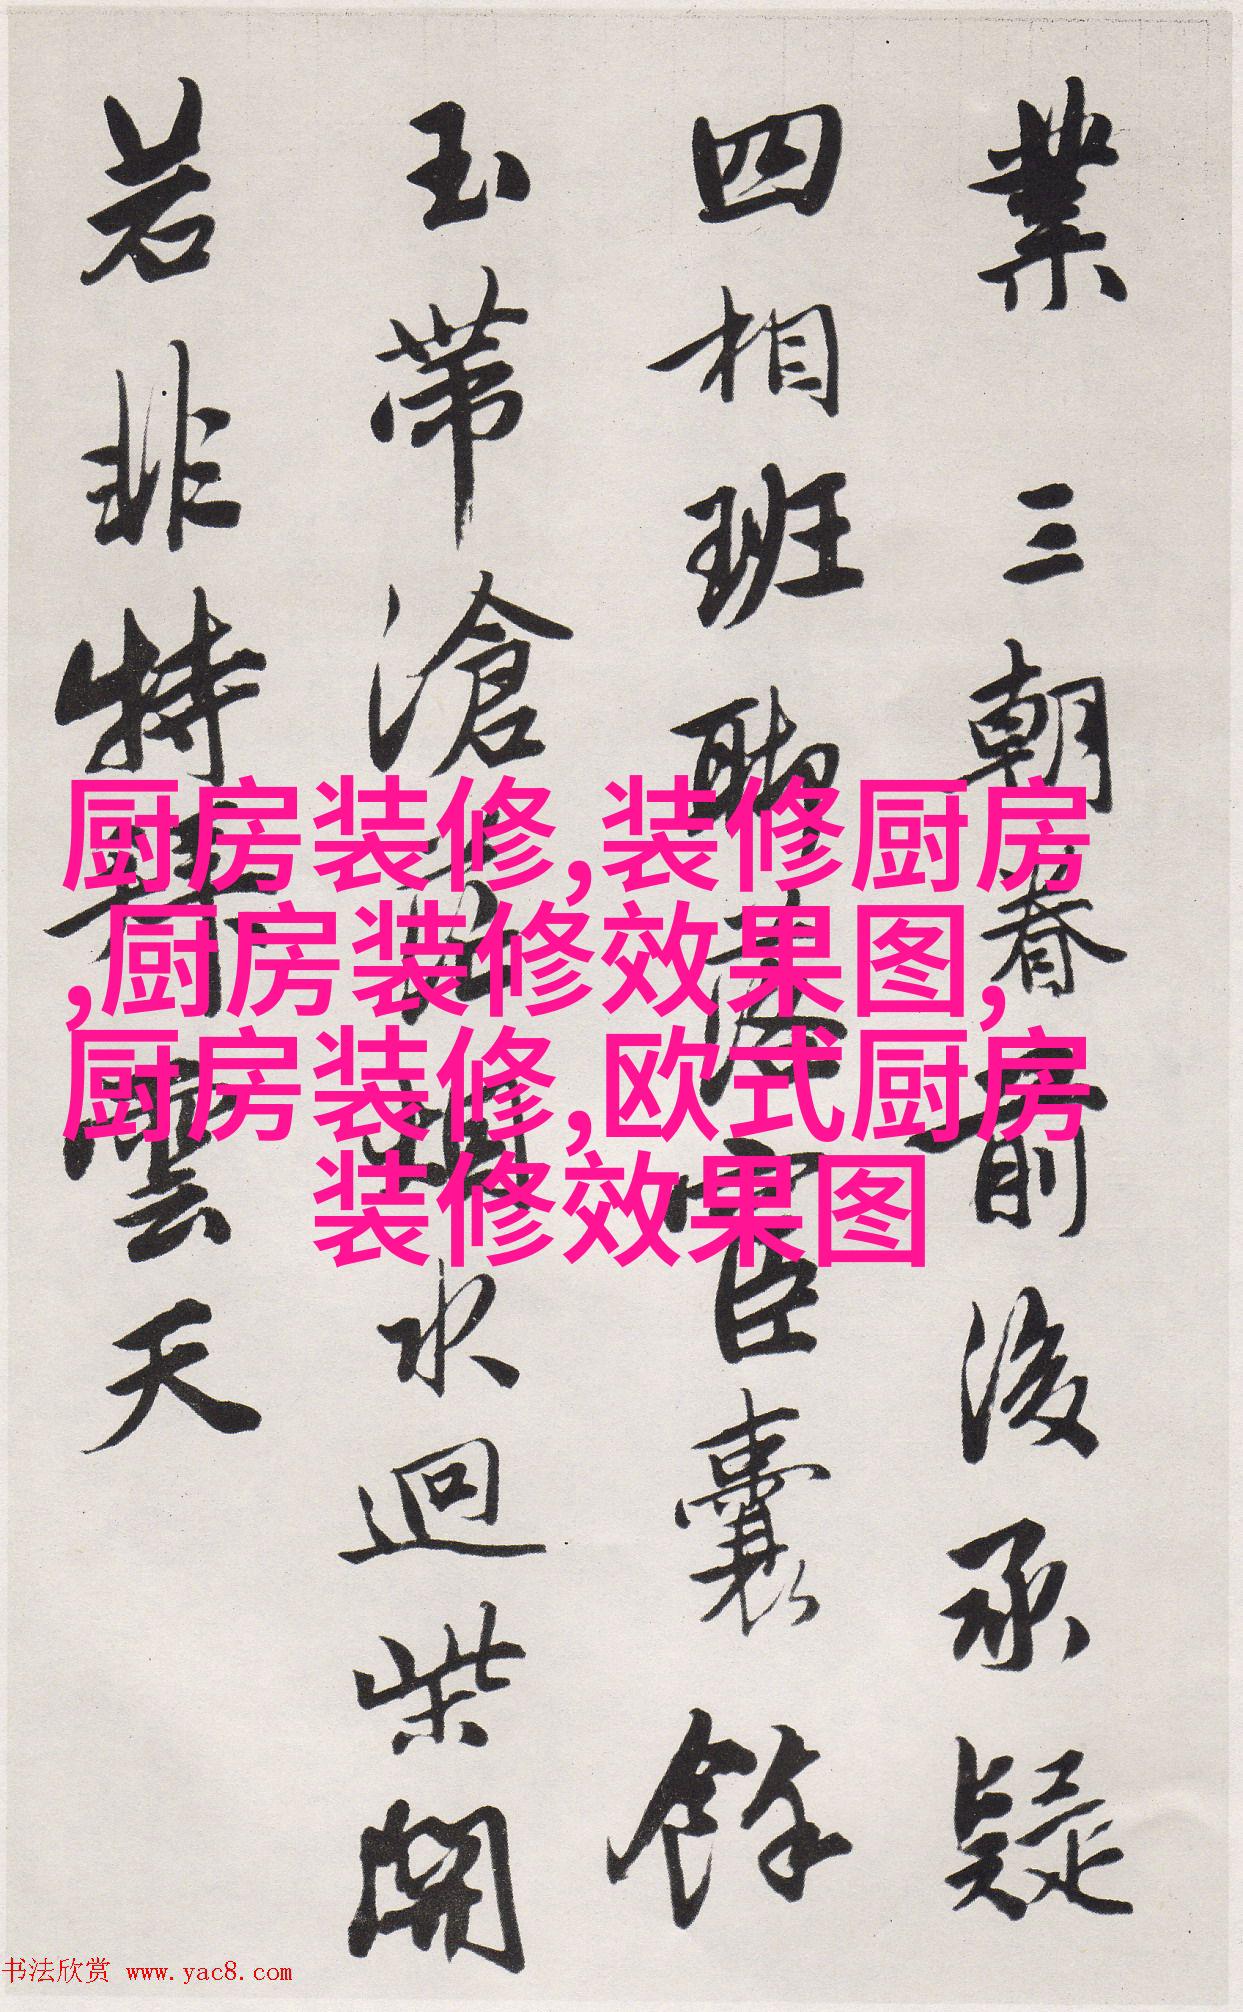 業三朝眷前後承疑
四相班聊落宦囊餘
玉帶滄水迴柴開
若非特雲天
厨房装修,装修厨房
,厨房装修效果图,
厨房装修,欧式厨房
装修效果图
书法欣赏 www.yac8.com